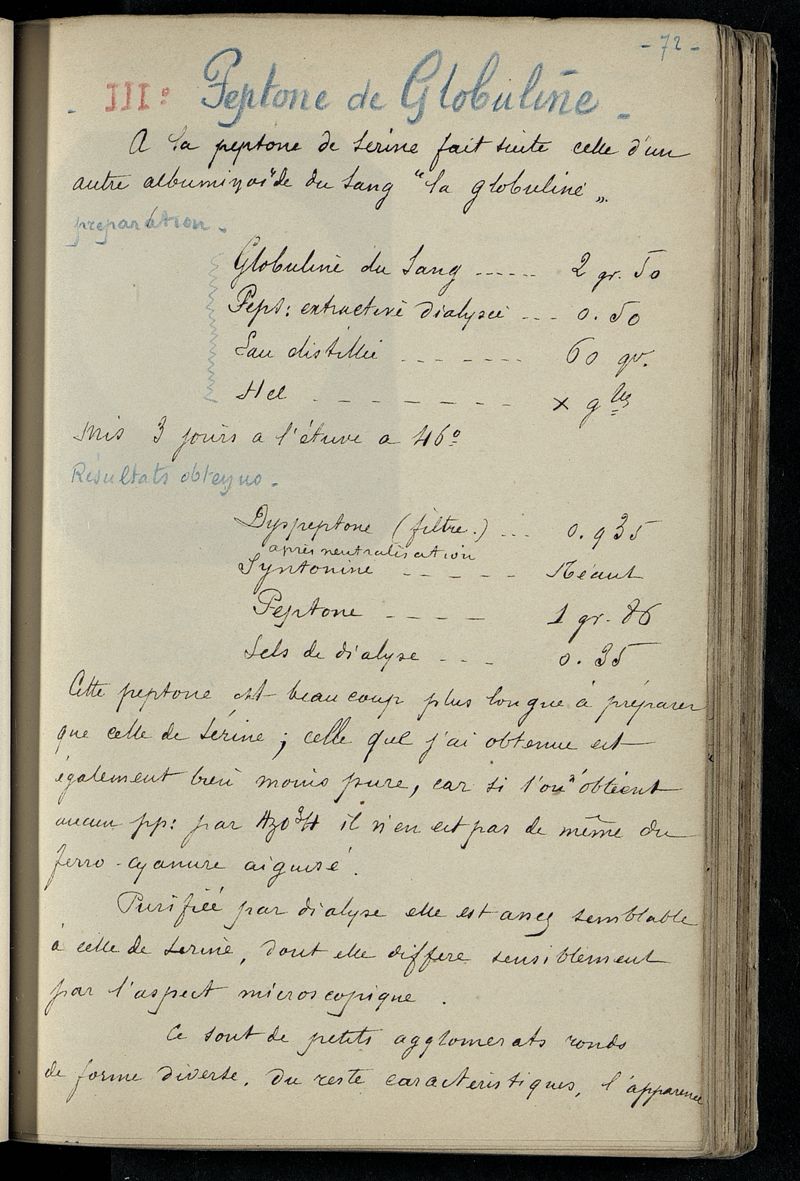 - 72 -
- III° Peptone de Globuline -
A la peptone de serine fait suite celle d'un
autre albuminoïde du sang "la globuline„
préparation -
Globuline du Sang ------ 2 gr. 50
Peps: extractive dialysée --- 0. 50
Eau distillée ------- 60 gr.
Hcl -------- X gttes
Mis 3 jours a l'étuve a 46°
Résultats obtenus -
Dyspeptone (filtre.) --- 0. 935
après neutralisation
Syntonine ----- Néant
Peptone ---- 1 gr. 86
Sels de dialyse --- 0. 35
Cette peptone est beaucoup plus longue à préparer
que celle de sérine ; celle que j'ai obtenue est
également bien moins pure, car si l'on n'obtient
aucun pp: par Azo³H il n'en est pas de même du
ferro-cyanure aiguisé.
Purifiée par dialyse elle est assez semblable
à celle de serine, dont elle differe sensiblement
par l'aspect microscopique .
Ce sont de petits agglomerats ronds
de forme diverse, du reste caracteristiques, l'apparence